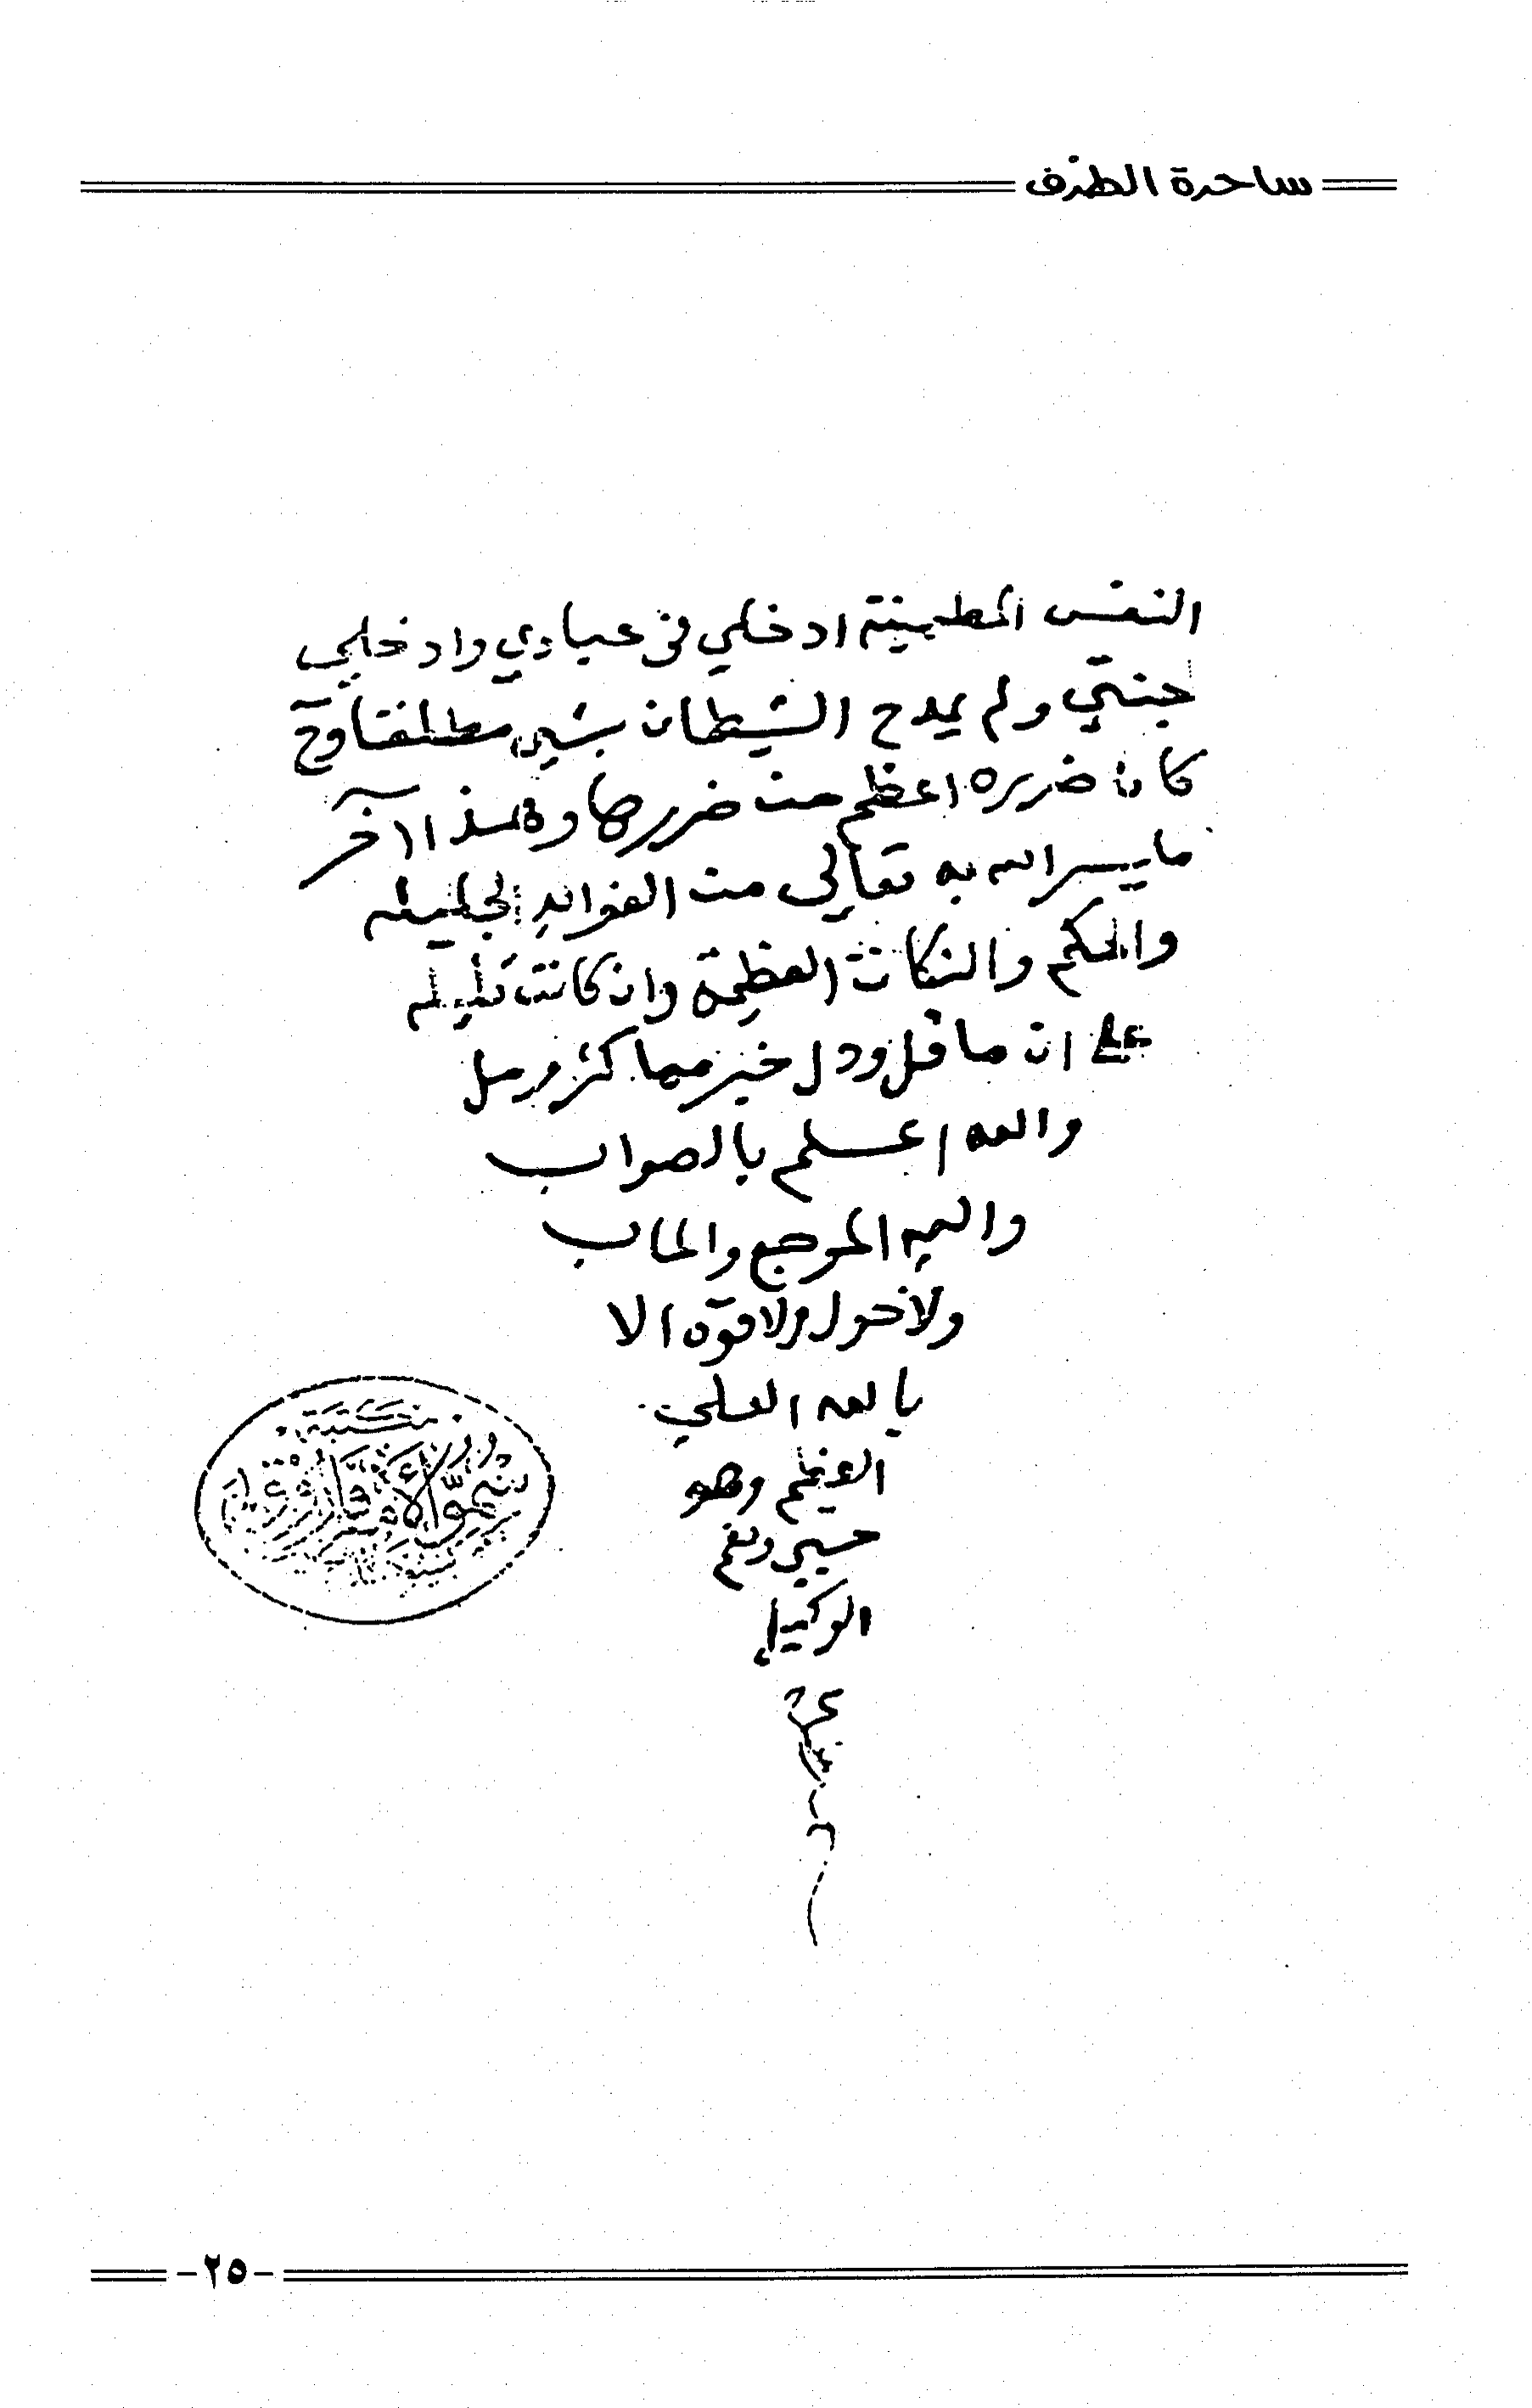 ساحرة الطرف
النفس المطمينة ادخلي فى عبادي وادخلي
جنتي ولم يمدح الشيطان بشيء مطلقا وح
كان ضرره اعظم من ضررها وهذا آخر
ما يسر الله به تعالى من الفوائد الجليله
والحكم والنكات العظيمة وان كانت قليله
على ان ما قل ودل خير مما كثر ومل
والله اعلم بالصواب
واليه المرجع والماب
ولا حول ولا قوة الا
بالله العلي
العظيم وهو
حسبي ونعم
الوكيل
مكتبة
-٢٥-